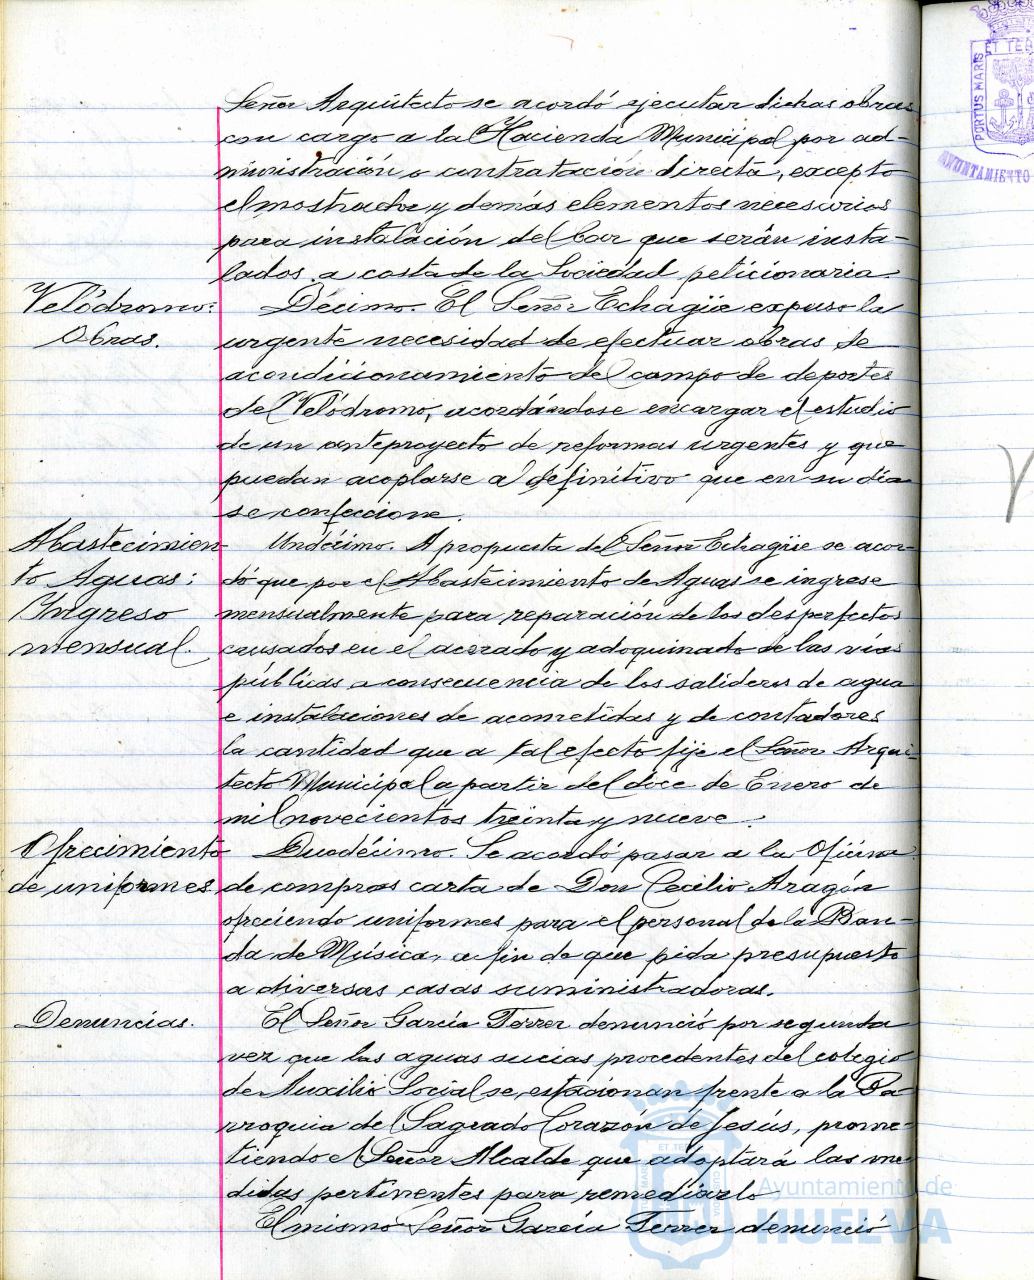 Señor Arquitecto se acordó ejecutar dichas obras
con cargo a la Hacienda Municipal por ad-
ministración o contratación directa, excepto
el mostrador y demás elementos necesarios
para instalación del bar que serán insta-
lados a costa de la Sociedad peticionaria.
Velódromo:
Obras.
Décimo. El Señor Echagüe expuso la
urgente necesidad de efectuar obras de
acondicionamiento del campo de deportes
del Velódromo, acordándose encargar el estudio
de un anteproyecto de reformas urgentes y que
puedan acoplarse al definitivo que en su día
se confeccione.
Abastecimien
to Aguas:
Ingreso
mensual.
Undécimo. A propuesta del Señor Echagüe se acor-
dó que por el Abastecimiento de Aguas se ingrese
mensualmente para reparación de los desperfectos
causados en el acerado y adoquinado de las vías
públicas a consecuencia de los salideros de agua
e instalaciones de acometidas y de contadores
la cantidad que a tal efecto fije el Señor Arqui-
tecto Municipal a partir del doce de Enero de
mil novecientos treinta y nueve.
Ofrecimiento
de uniformes
Duodécimo. Se acordó pasar a la Oficina
de compras carta de Don Cecilio Aragón
ofreciendo uniformes para el personal de la Ban-
da de Música, a fin de que pida presupuesto
a diversas casas suministradoras.
Denuncias.
El Señor García Terrer denunció por segunda
vez que las aguas sucias procedentes del colegio
de Auxilio Social se estacionan frente a la Pa-
rroquia del Sagrado Corazon de Jesús, prome-
tiendo el Señor Alcalde que adoptará las me-
didas pertinentes para remediarlo
El mismo Señor García Terrer denunció
PORTUS MARIS ET TER
AYUNTAMIENTO
Ayuntamiento de
HUELVA